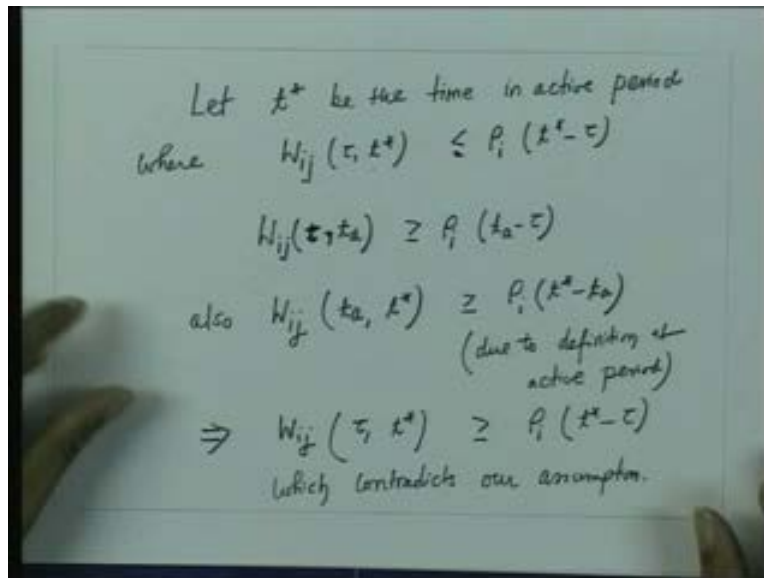 Let t* be the time in active period
where W_ij (τ, t*) ≤ P_i (t* - τ)
W_ij (τ, t_a) ≥ P_i (t_a - τ)
also W_ij (t_a, t*) ≥ P_i (t* - t_a)
(due to definition of
active period)
⇒ W_ij (τ, t*) ≥ P_i (t* - τ)
which contradicts our assumption.